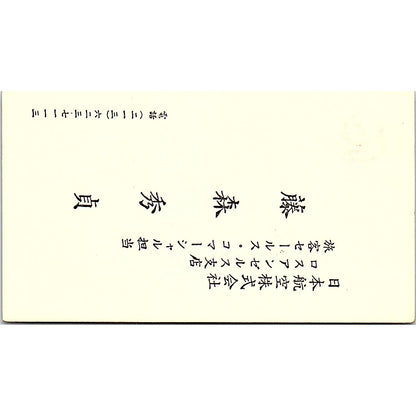 日本航空株式会社
ロスアンゼルス支店
旅客セールス・コマーシャル担当
藤森秀貞
電話(二一三)六二三-七一一三